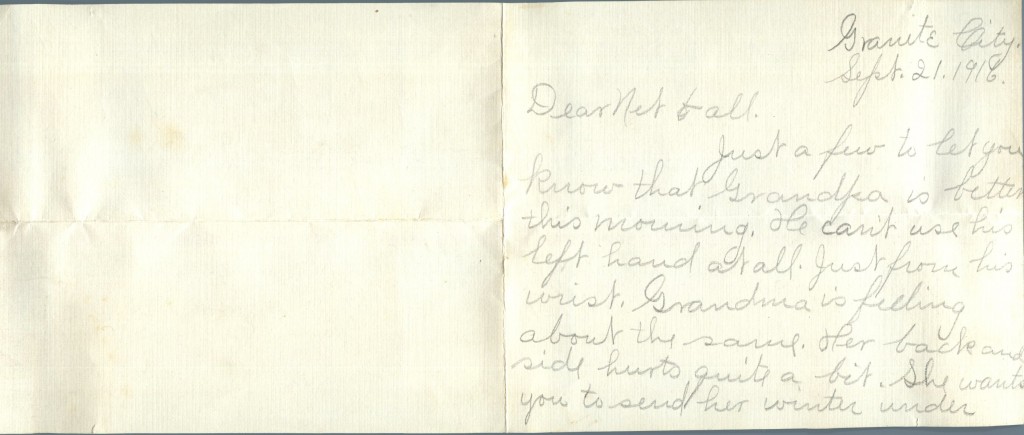 Granite City.
Sept. 21. 1918.
Dear Net & all.
Just a few to let you
know that Grandpa is better
this morning. He can't use his
left hand at all. Just from his
wrist. Grandma is feeling
about the same. Her back and
side hurts quite a bit. She wants
you to send her winter under